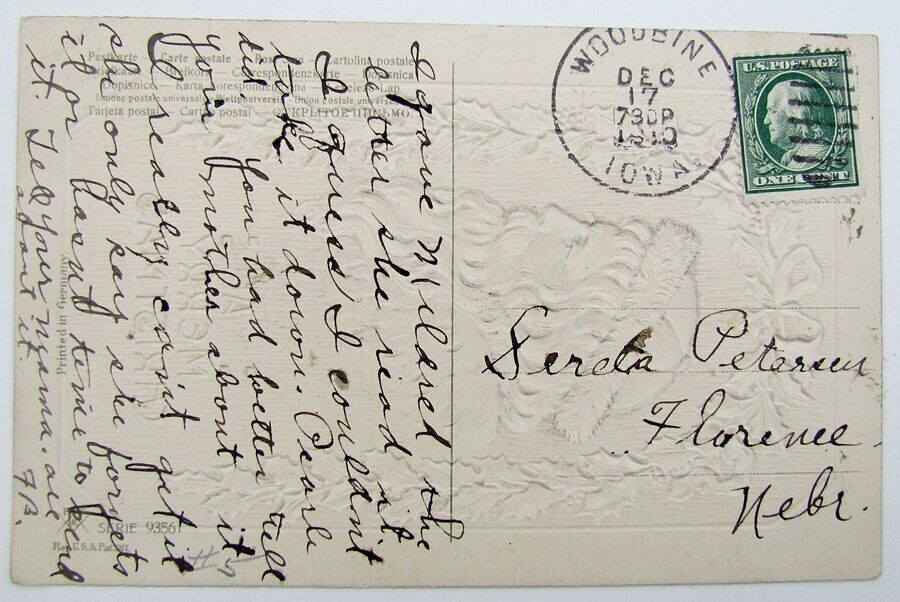 Postkarte — Carte postale — Cartolina postale
Briefkaart — Brefkort — Correspondenzkarte — Dopisnica
Dopisnice — Karta korespondencyjna — Levelezö-Lap
Union postale universelle. Weltpostverein. Union postale universelle.
Tarjeta postal — Carte postal — ОТКРЫТОЕ ПИСЬМО.
I gave Mildred the
letter she read it.
I guess I couldn't
take it down. Pearle
did. You had better tell
your mother about it.
I really can't get it
she only says she forgets
it or hasn't time to send
it. Tell your mama all
about it. G.B.
Printed in Germany
SERIE 9356
Reg. U.S.A. Pat. Off.
WOODBINE
DEC
17
730P
1910
IOWA.
U.S. POSTAGE
ONE CENT
Sereta Petersen
Florence
Nebr.